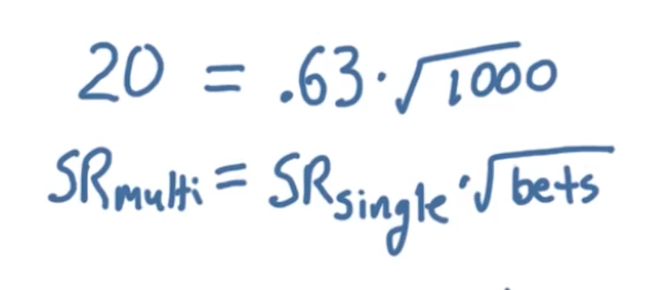 20 = .63·√1000
SRmulti = SRsingle·√bets